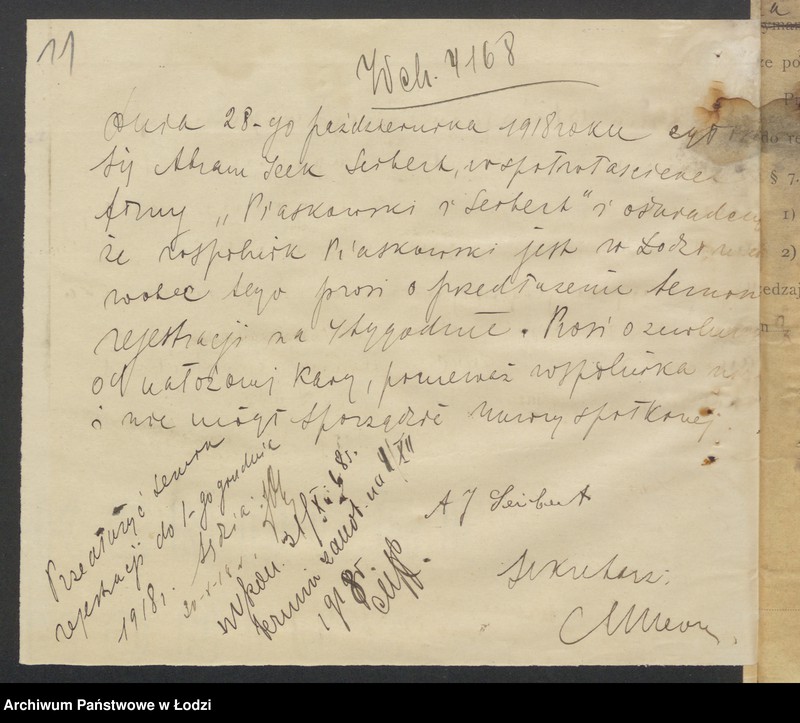 11
Wch. 4168
Dnia 28-go października 1918 roku
się Abram Icek Seibert, współwłaściciel
firmy „Piaskowski i Seibert" i oświadcza
że wspólnik Piaskowski jest w Łodzi
wobec tego prosi o przedłużenie termin
rejestracji na 4 tygodnie. Prosi o zwolnienie
od nałożonej kary, ponieważ wspólnika
i nie mógł sporządzić umowy spółkowej.
A J Seibert
Sekretarz:
Przedłużyć termin
rejestracji do 1-go grudnia
1918 r. Sędzia:
wykon.
termin zanot. na 1/XII
1918 r.
a
że po
§ 7.
1)
2)